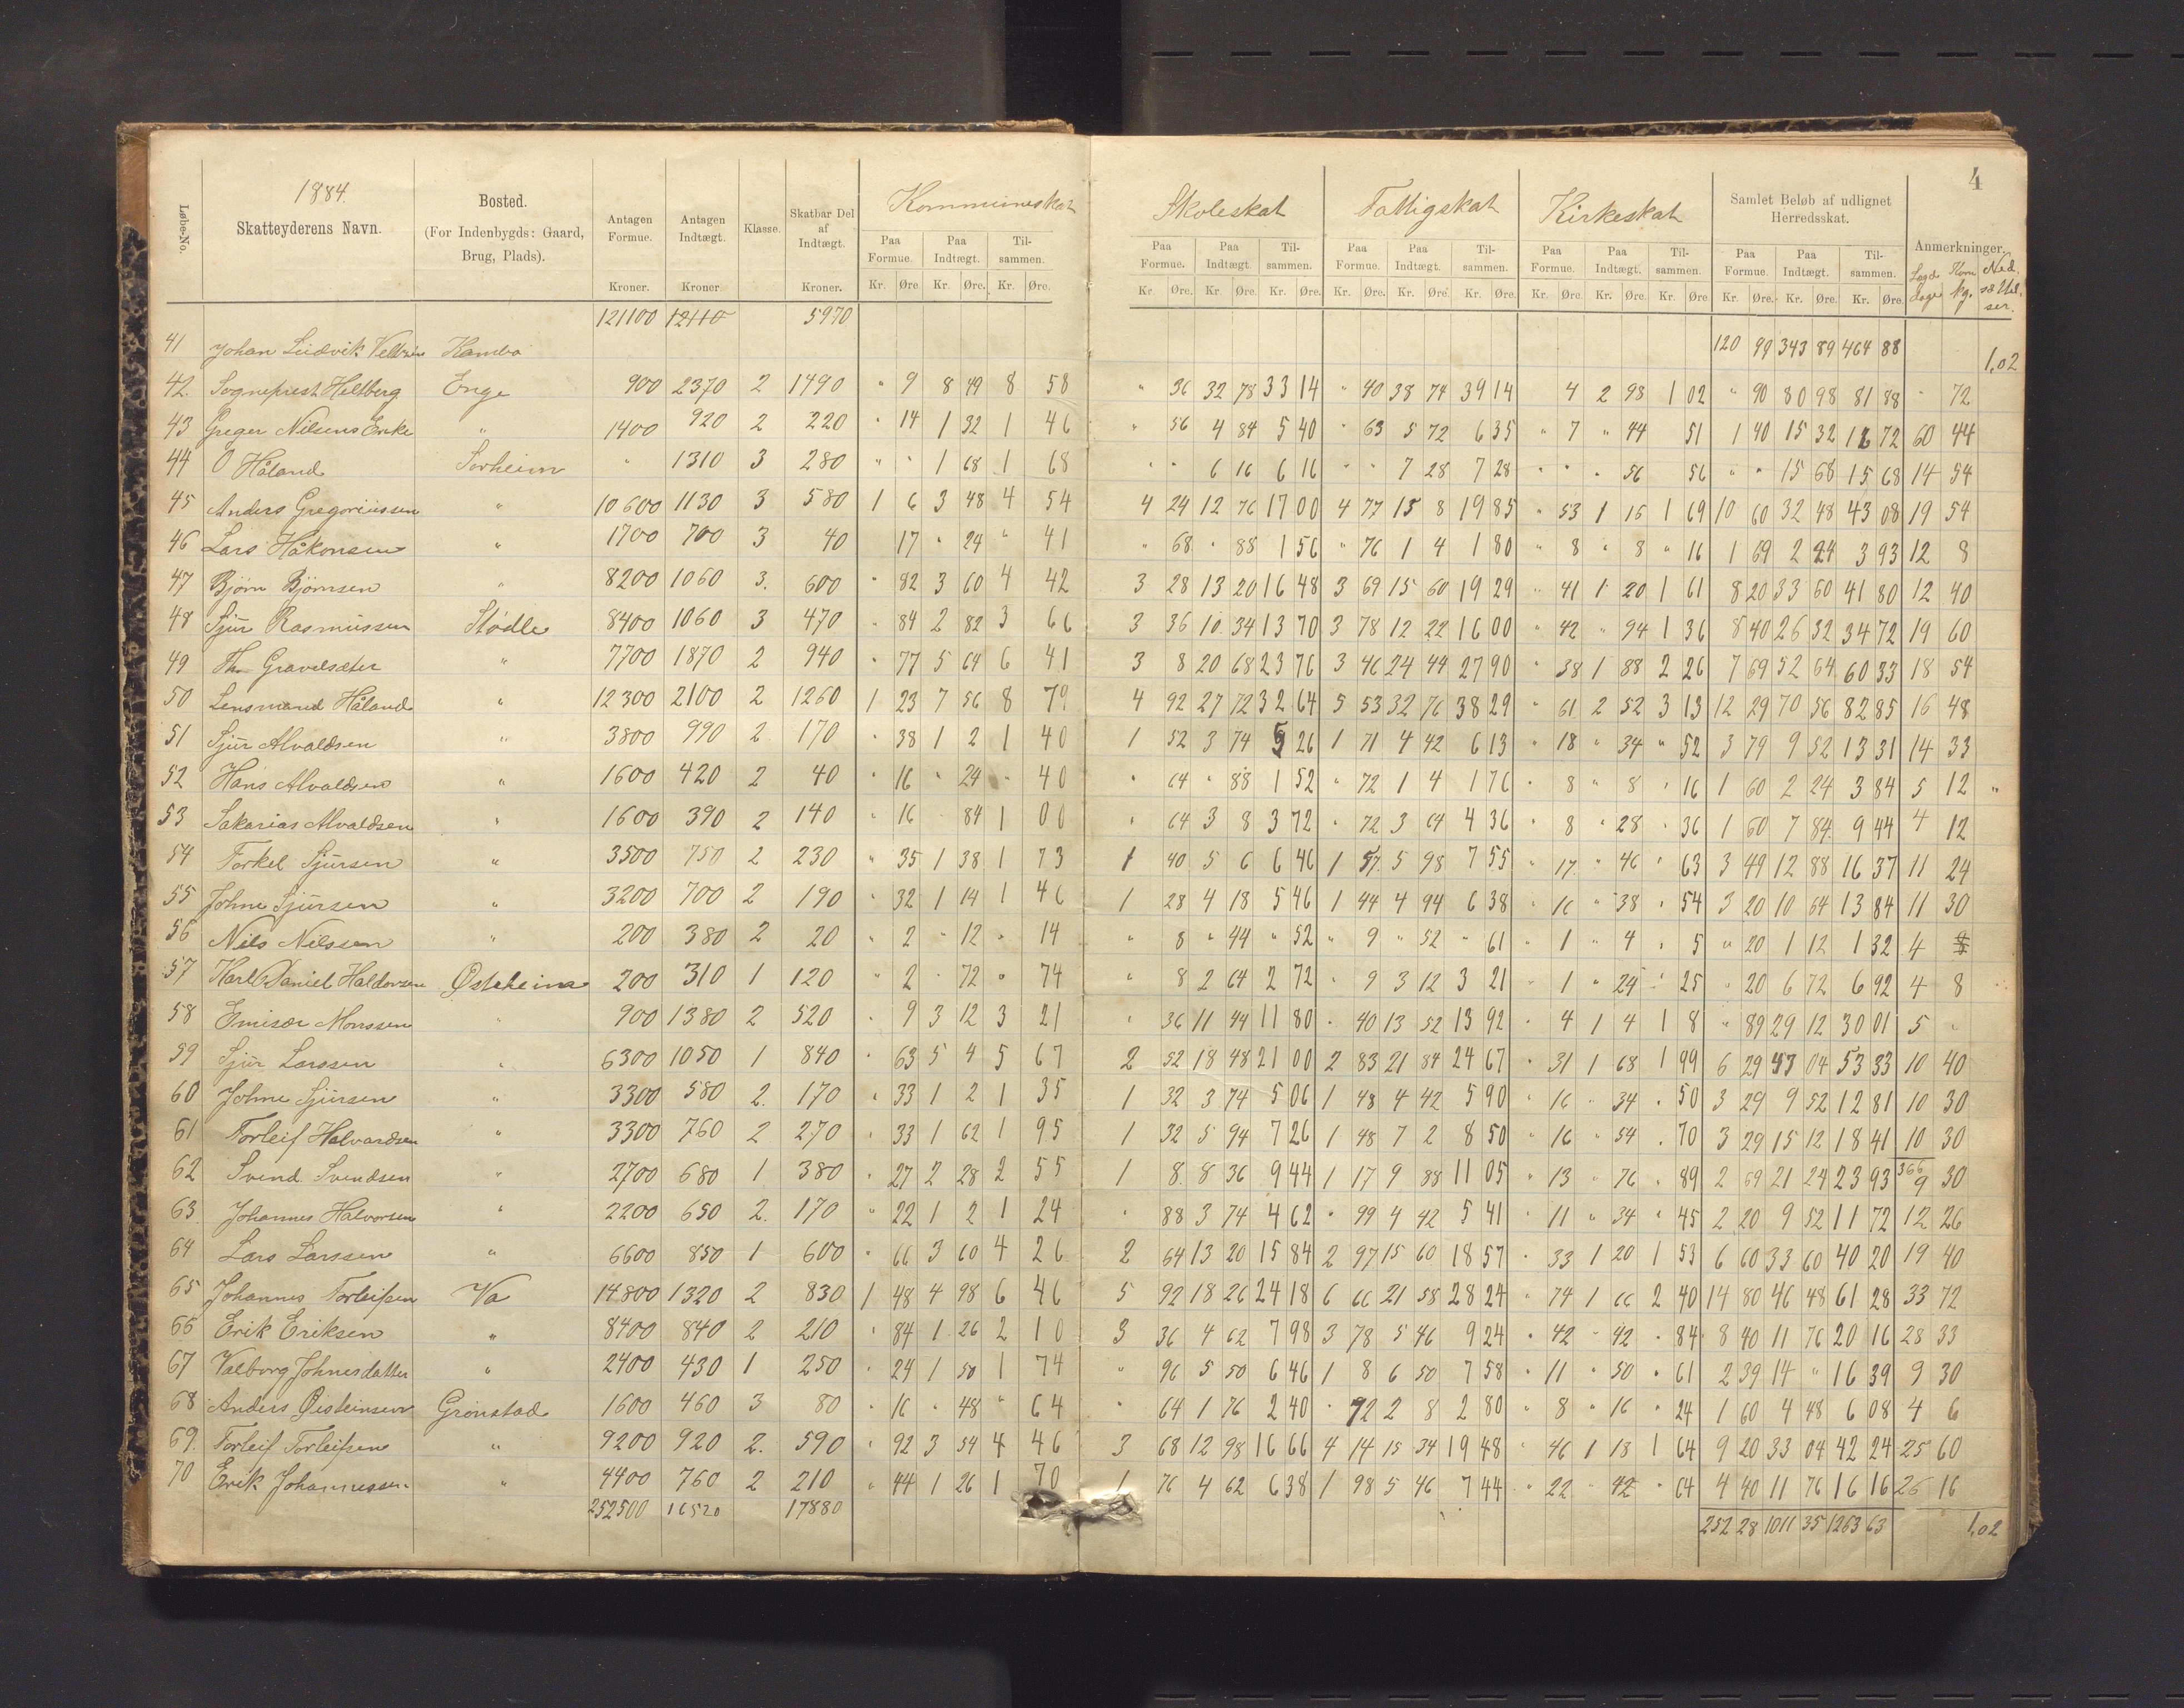 4
1884.
Løbe-No. Skatteyderens Navn. Bosted. (For Indenbygds: Gaard, Brug, Plads). Antagen Formue. Antagen Indtægt. Klasse. Skatbar Del af Indtægt. Kommuneskat Skoleskat Fattigskat Kirkeskat Samlet Beløb af udlignet Herredsskat. Anmerkninger.
Paa Formue. Paa Indtægt. Tilsammen. Paa Formue. Paa Indtægt. Tilsammen. Paa Formue. Paa Indtægt. Tilsammen. Paa Formue. Paa Indtægt. Tilsammen. Paa Formue. Paa Indtægt. Tilsammen. Korn kg.
Kroner. Kroner. Kroner. Kr. Øre. Kr. Øre. Kr. Øre. Kr. Øre. Kr. Øre. Kr. Øre. Kr. Øre. Kr. Øre. Kr. Øre. Kr. Øre. Kr. Øre. Kr. Øre. Kr. Øre. Kr. Øre. Kr. Øre.
121100 12110 5970
41 Johan Ludvik Kambo 120 99 343 89 464 88 1,02
42. Sogneprest Heltberg Enge 900 2370 2 1490 " 9 8 49 8 58 " 36 32 78 33 14 " 40 38 74 39 14 4 2 98 1 02 " 90 80 98 81 88 " 72
43 Greger Nilsens Enke " 1400 920 2 220 " 14 1 32 1 46 " 56 4 84 5 40 " 63 5 72 6 35 " 7 " 44 51 1 40 15 32 16 72 60 44
44 O Håland Sørheim " 1310 3 280 " " 1 68 1 68 " " 6 16 6 16 " " 7 28 7 28 " " " 56 56 " " 15 68 15 68 14 54
45 Anders Gregoriussen " 10600 1130 3 580 1 6 3 48 4 54 4 24 12 76 17 00 4 77 15 8 19 85 " 53 1 16 1 69 10 60 32 48 43 08 19 54
46 Lars Håkonsen " 1700 700 3 40 17 " 24 " 41 " 68 " 88 1 56 " 76 1 4 1 80 " 8 " 8 " 16 1 69 2 24 3 93 12 8
47 Bjørn Bjørnsen " 8200 1060 3. 600 " 82 3 60 4 42 3 28 13 20 16 48 3 69 15 60 19 29 " 41 1 20 1 61 8 20 33 60 41 80 12 40
48 Sjur Rasmussen Stødle 8400 1060 3 470 " 84 2 82 3 66 3 36 10 34 13 70 3 78 12 22 16 00 " 42 " 94 1 36 8 40 26 32 34 72 19 60
49 Th. Gravelsæter " 7700 1870 2 940 " 77 5 64 6 41 3 8 20 68 23 76 3 46 24 44 27 90 " 38 1 88 2 26 7 69 52 64 60 33 18 54
50 Lensmand Håland " 12300 2100 2 1260 1 23 7 56 8 79 4 92 27 72 32 64 5 53 32 76 38 29 " 61 2 52 3 13 12 29 70 56 82 85 16 48
51 Sjur Alvaldsen " 3800 990 2 170 " 38 1 2 1 40 1 52 3 74 5 26 1 71 4 42 6 13 " 18 " 34 " 52 3 79 9 52 13 31 14 33
52 Hans Alvaldsen " 1600 420 2 40 " 16 " 24 " 40 " 64 " 88 1 52 " 72 1 4 1 76 " 8 " 8 " 16 1 60 2 24 3 84 5 12 "
53 Sakarias Alvaldsen " 1600 390 2 140 " 16 " 84 1 00 " 64 3 8 3 72 " 72 3 64 4 36 " 8 " 28 " 36 1 60 7 84 9 44 4 12
54 Torkel Sjursen " 3500 750 2 230 " 35 1 38 1 73 1 40 5 6 6 46 1 57 5 98 7 55 " 17 " 46 " 63 3 49 12 88 16 37 11 24
55 Johne Sjursen " 3200 700 2 190 " 32 1 14 1 46 1 28 4 18 5 46 1 44 4 94 6 38 " 16 " 38 " 54 3 20 10 64 13 84 11 30
56 Nils Nilssen " 200 380 2 20 " 2 " 12 " 14 " 8 " 44 " 52 " 9 " 52 " 61 " 1 " 4 " 5 " 20 1 12 1 32 4
57 Karl Daniel Haldorsen Østeheim 200 310 1 120 " 2 " 72 " 74 " 8 2 64 2 72 " 9 3 12 3 21 " 1 " 24 " 25 " 20 6 72 6 92 4 8
58 Emisær Monssen " 900 1380 2 520 " 9 3 12 3 21 " 36 11 44 11 80 " 40 13 52 13 92 " 4 1 4 1 8 " 89 29 12 30 01 5 "
59 Sjur Larssen " 6300 1050 1 840 " 63 5 4 5 67 2 52 18 48 21 00 2 83 21 84 24 67 " 31 1 68 1 99 6 29 47 04 53 33 10 40
60 Johne Sjursen " 3300 580 2. 170 " 33 1 2 1 35 1 32 3 74 5 06 1 48 4 42 5 90 " 16 " 34 " 50 3 29 9 52 12 81 10 30
61 Torleif Halvardsen " 3300 760 2 270 " 33 1 62 1 95 1 32 5 94 7 26 1 48 7 2 8 50 " 16 " 54 " 70 3 29 15 12 18 41 10 30
62 Svend Svendsen " 2700 680 1 380 " 27 2 28 2 55 1 8 8 36 9 44 1 17 9 88 11 05 " 13 " 76 " 89 2 69 21 24 23 93 366 9 30
63. Johannes Halvorsen " 2200 650 2. 170 " 22 1 2 1 24 " 88 3 74 4 62 " 99 4 42 5 41 " 11 " 34 " 45 2 20 9 52 11 72 12 26
64 Lars Larssen " 6600 850 1 600 " 66 3 60 4 26 2 64 13 20 15 84 2 97 15 60 18 57 " 33 1 20 1 53 6 60 33 60 40 20 19 40
65 Johannes Torleifsen Va 14800 1320 2 830 1 48 4 98 6 46 5 92 18 26 24 18 6 66 21 58 28 24 " 74 1 66 2 40 14 80 46 48 61 28 33 72
66 Erik Eriksen " 8400 840 2 210 " 84 1 26 2 10 3 36 4 62 7 98 3 78 5 46 9 24 " 42 " 42 " 84 8 40 11 76 20 16 28 33
67 Valborg Johnesdatter " 2400 430 1 250 " 24 1 50 1 74 " 96 5 50 6 46 1 8 6 50 7 58 " 11 " 50 " 61 2 39 14 " 16 39 9 30
68 Anders Øisteinsen Grønstad 1600 460 3 80 " 16 " 48 " 64 " 64 1 76 2 40 " 72 2 8 2 80 " 8 " 16 " 24 1 60 4 48 6 08 4 6
69. Torleif Torleifsen " 9200 920 2. 590 " 92 3 54 4 46 3 68 12 98 16 66 4 14 15 34 19 48 " 46 1 18 1 64 9 20 33 04 42 24 25 60
70 Erik Johannessen " 4400 760 2 210 " 44 1 26 1 70 1 76 4 62 6 38 1 98 5 46 7 44 " 22 " 42 " 64 4 40 11 76 16 16 26 16
252500 16520 17880 252 28 1011 35 1263 63 1,02